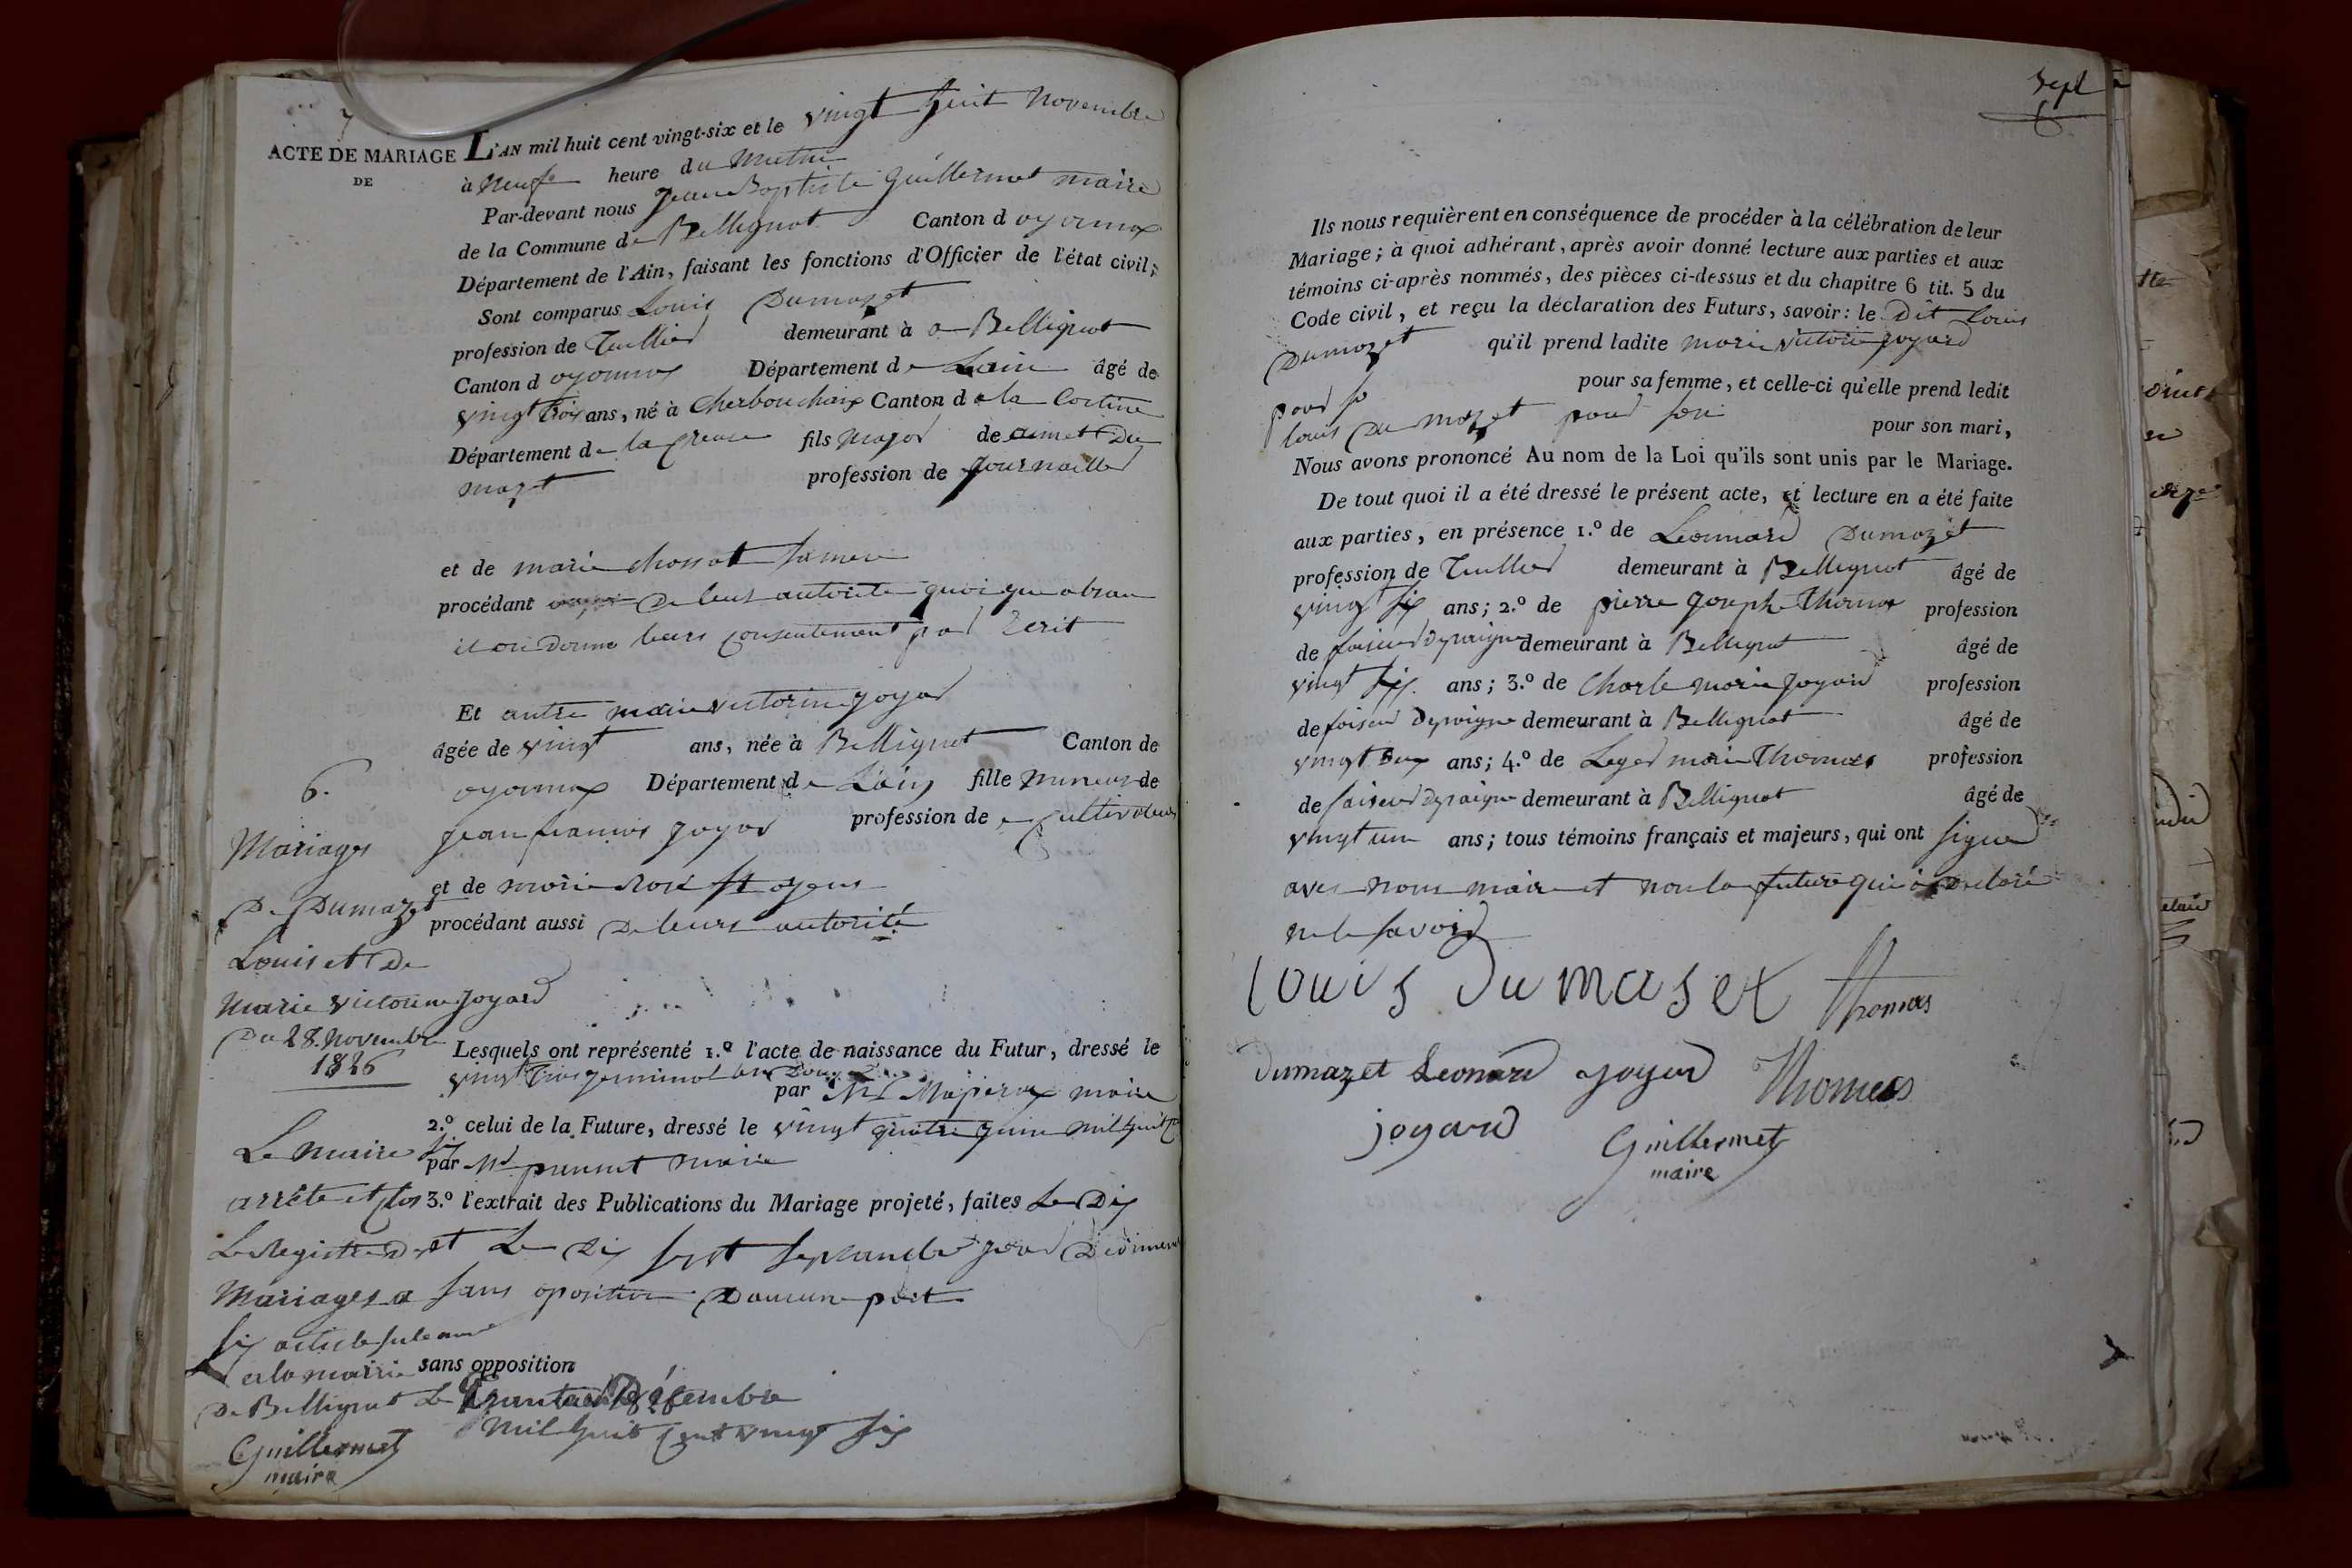 7
ACTE DE MARIAGE
DE
6.
Mariages
De Dumazet
Louis et De
Marie victorine Joyard
Du 28. Novembre
1826
Le maire
arrête et clos
Le Registre De
Mariages a
six article
a la mairie
De Bellignat Le Trente un Décembre
Mil huit cent vingt six
Guillermet
maire
L'AN mil huit cent vingt-six et le vingt huit Novembre
à Neuf heure du Matin
Par-devant nous Jean Baptiste Guillermet maire
de la Commune de Bellignat Canton d oyonnax
Département de l'Ain, faisant les fonctions d'Officier de l'état civil;
Sont comparus Louis Dumazet
profession de Tuillier demeurant à a Bellignat
Canton d oyonnax Département de Lain âgé de
vingt trois ans, né à Cherbouchaix Canton de la Cortine
Département de la Creuse fils major de aimet Du
mazet profession de Journailler
et de marie chossat sa mere
procédant De leurs autorite quoi que absan
il on donne leurs consentement par Ecrit
Et autre marie victorine Joyard
âgée de vingt ans, née à Bellignat Canton de
oyonnax Département de Lain fille mineur de
Jean francois Joyard profession de cultivateur
et de marie Rose St oyens
procédant aussi De leurs autorité
Lesquels ont représenté 1.º l'acte de naissance du Futur, dressé le
vingt Trois germinal an Douze
par Mr maire
2.º celui de la Future, dressé le vingt quatre juin mil huit ct
six
par Mr maire
3.º l'extrait des Publications du Mariage projeté, faites Le Dix
et Le Dix sept septambre jour De dimen
sans oposition Daucune part
sans opposition
sept
Ils nous requièrent en conséquence de procéder à la célébration de leur
Mariage; à quoi adhérant, après avoir donné lecture aux parties et aux
témoins ci-après nommés, des pièces ci-dessus et du chapitre 6 tit. 5 du
Code civil, et reçu la déclaration des Futurs, savoir: le Dit Louis
Dumazet qu'il prend ladite marie victorine Joyard
pour sa pour sa femme, et celle-ci qu'elle prend ledit
louis Du mazet pour son pour son mari,
Nous avons prononcé Au nom de la Loi qu'ils sont unis par le Mariage.
De tout quoi il a été dressé le présent acte, et lecture en a été faite
aux parties, en présence 1.º de Leonnard Dumazet
profession de Tuillier demeurant à Bellignat âgé de
vingt six ans; 2.º de pierre Joseph Thomas profession
de faiseur de paigne demeurant à Bellignat âgé de
vingt six ans; 3.º de Charle marie Joyard profession
de faiseur De paigne demeurant à Bellignat âgé de
vingt Deux ans; 4.º de Leger marie Thomas profession
de faiseur De paigne demeurant à Bellignat âgé de
vingt un ans; tous témoins français et majeurs, qui ont signer
avec nous maire et non la future qui a Declaré
ne le savoir
louis Dumaset Thomas
Dumazet Leonard Joyard Thomas
joyard Guillermet
maire